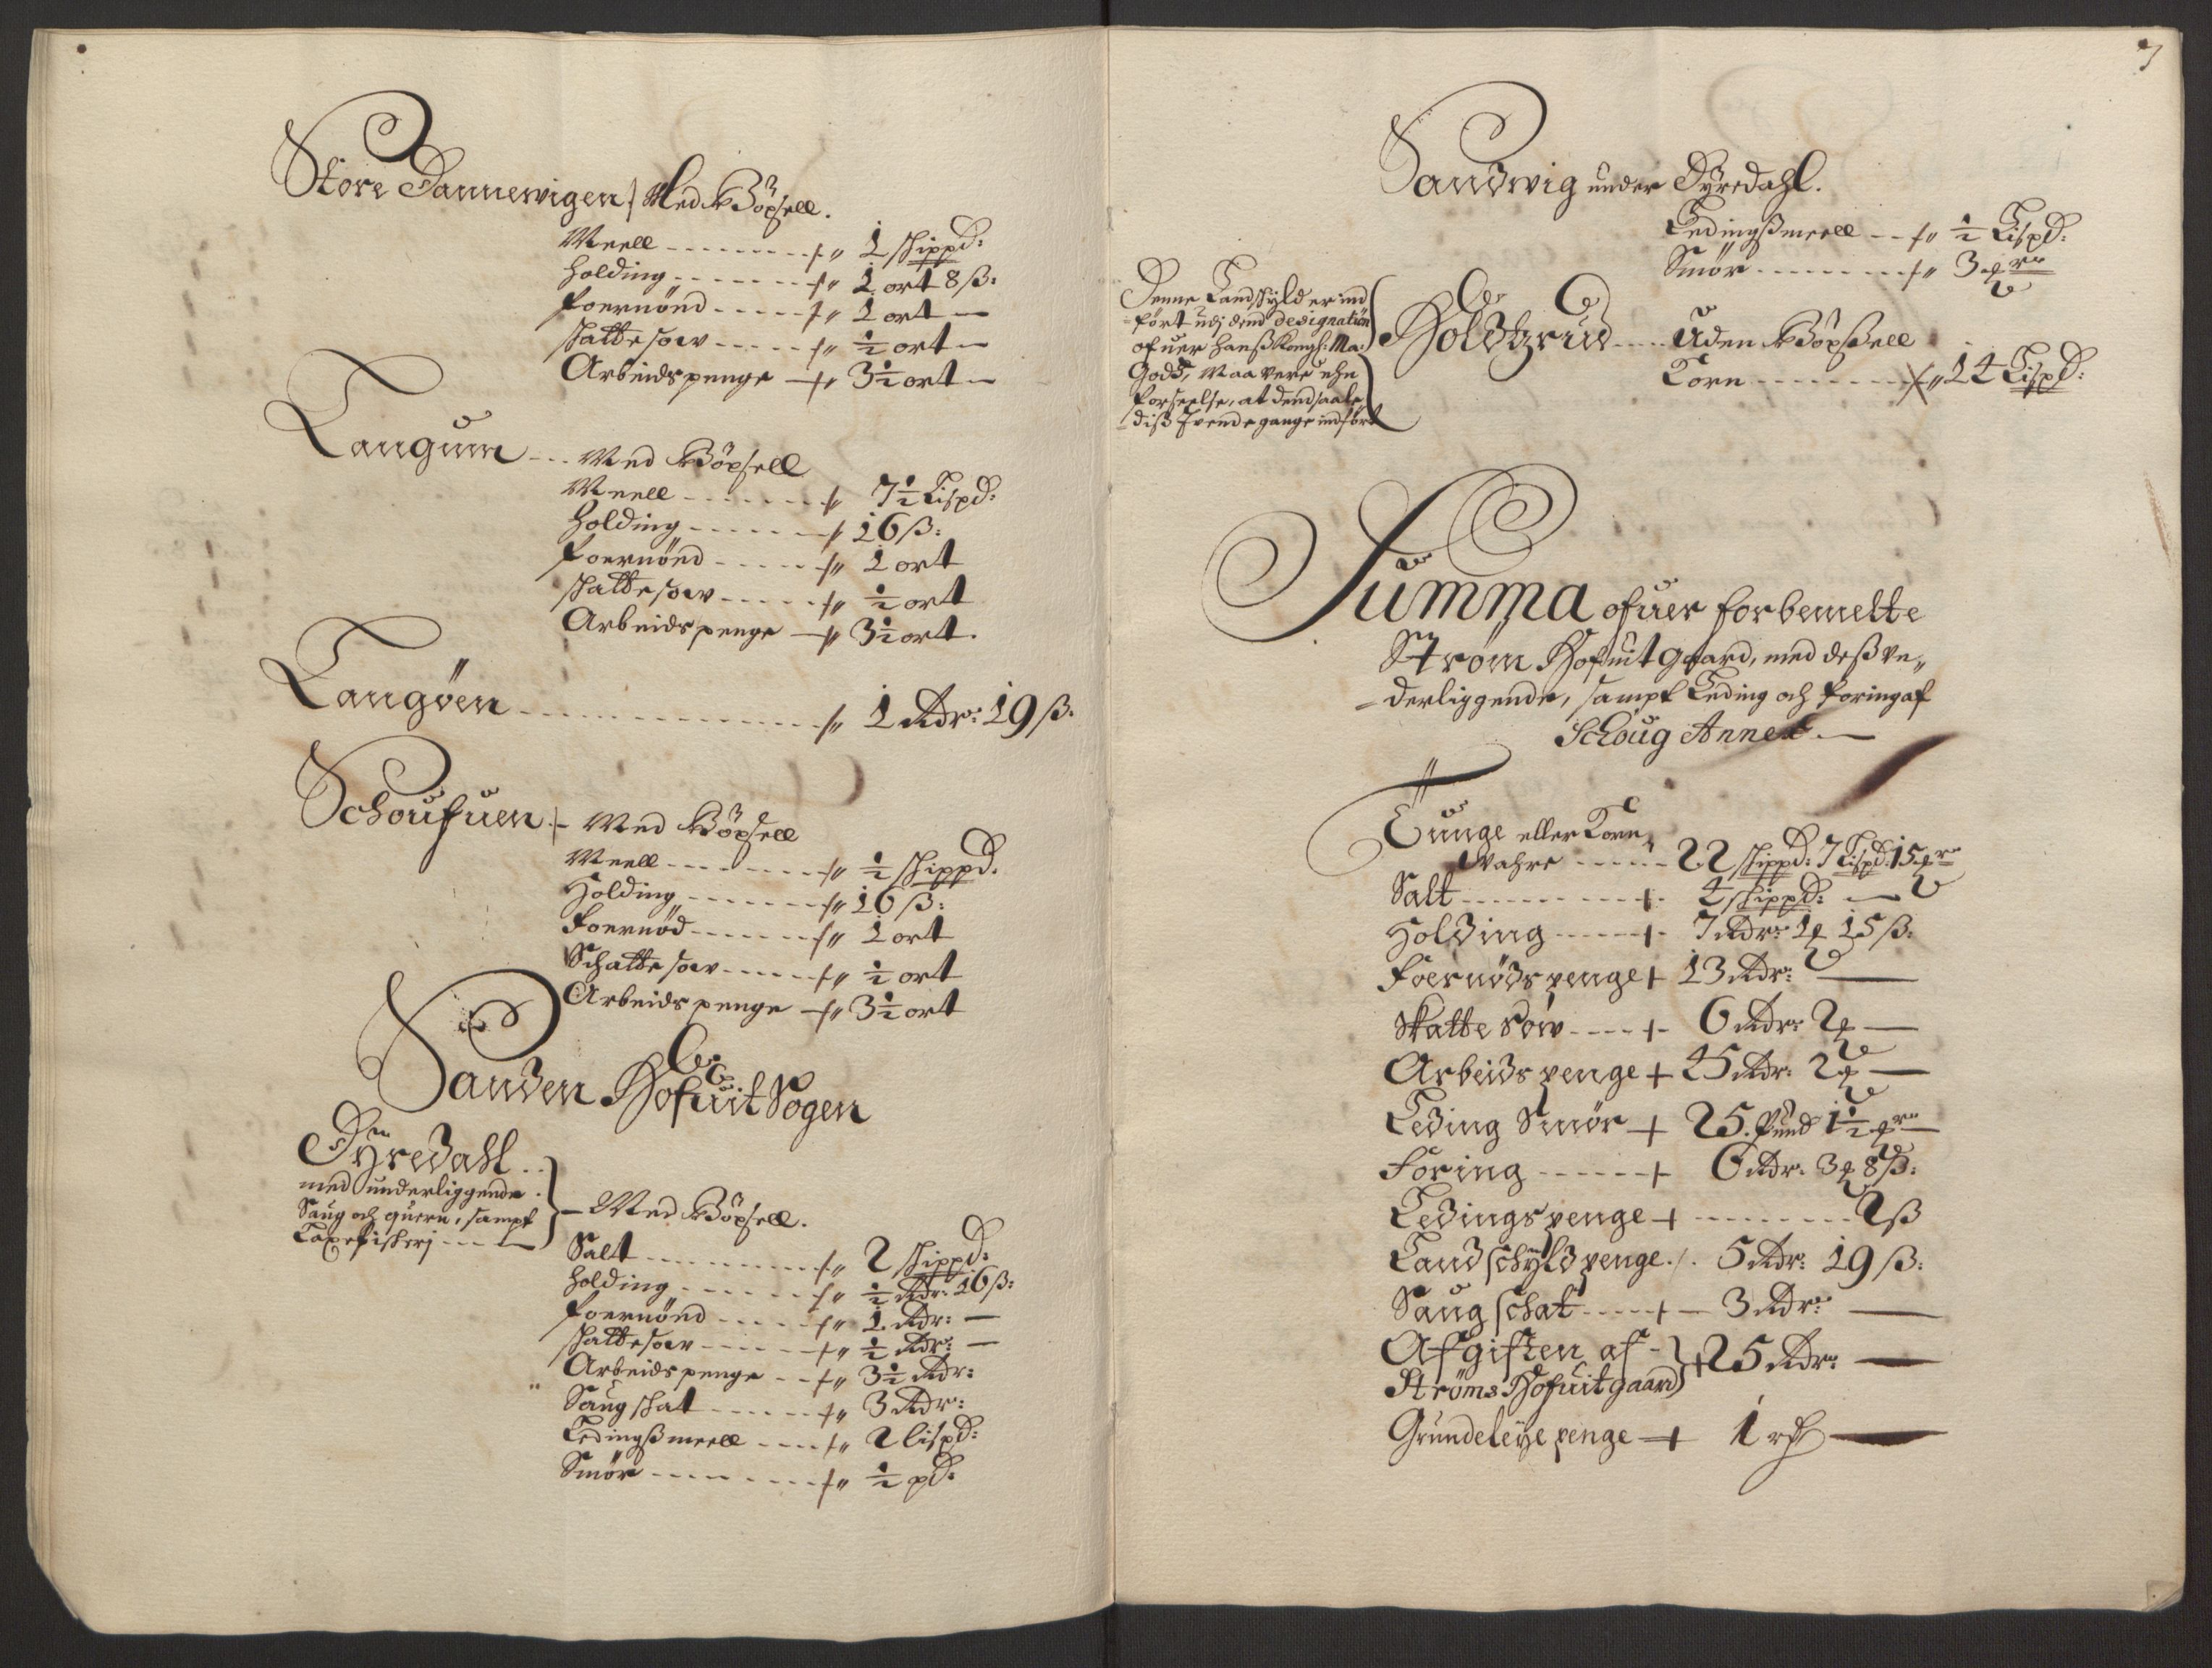 Store Dannewigen, Med Böxsell.
Meell - - - - - - - - // 1 skippd:
holding - - - - - - - // 1 ort 8 ß:
foernöed - - - - - // 1 ort —
skattesoev - - - - - // ½ ort —
Arbeidspenge — // 3½ ort —
Langum - - . Med Böxsell
Meell - - - - - - - - // 7½ Lispd:
holding - - - - - - - // 16 ß:
foernöed - - - - - // 1 ort
skattesoev - - - - - // ½ ort
Arbeidspenge — // 3½ ort.
Langöen - - - - - - - - - - - - - - // 1 Rdr: 19 ß.
Schoufuen. - Med Böxsell
Meell - - - - - - - - // ½ skippd.
Holding - - - - - - - // 16 ß:
Foernöd - - - - - - - // 1 ort
Schattesoev - - - - - - // ½ ort
Arbeidspenge — // 3½ ort
Sanden Hofuit Sogen
Dyredahl . .
med underliggende .
Saug och quern, sampt
Laxefiskerj - - - -
— Med Böxsell.
Salt - - - - - - - - - - // 2 skippd:
holding - - - - - - - // ½ Rdr: 16 ß:
foernöed - - - - - // 1 Rdr: —
skattesoev - - - - - - // ½ Rdr: —
Arbeidspenge - - // 3½ Rdr:
Saugskat - - - - - - // 3 Rdr:
Ledingßmeell - - - - // 2 lispd:
Smör - - - - - - - - - // ½ pd:
7
Sandwig under Dyredahl.
Ledingßmeell - - // ½ Lispd:
Smör - - - - - - - - - // 3 mrr
Denne Landskyld er ind
=fört udj dend designation
ofuer hanß Kongl: Ma:
Godß, Maa vere ehn
forseelse, at dend saale,
=diß tvende gange indfört
Holdtzrud - - - . Uden Böxßell
Korn - - - - - - - - - // 14 Lispd:
Summa ofuer forbemelte
Ström Hofuit Gaard, med deß ve,,
=derliggende, sampt Leding och foring af
Schoug Annex. —
Tunge eller Korn,
Vahre - - - - - - 22 skippd: 7 Lispd: 15 mrr
Salt - - - - - - - - - - + - 4 skippd: —
Holding - - - - - + - 7 Rdr: 1 mr 15 ß:
Foernödspenge + 13 Rdr: —
Skatte Sow - - - - + - 6 Rdr: 2 mr —
Arbeidspenge + 45 Rdr: 2 mr —
Leding Smör + 25. Pund 1½ mrr —
Foring - - - - - - + 6 Rdr: 3 mr 8 ß:
Ledingspenge + - - - - - - - - 2 ß
Landschyldpenge. /. 5 Rdr: 19 ß:
Saugschat - - - - - + — 3 Rdr: —
Afgiften af -
Ströms Hofuitgaard + 25 Rdr: —
Grundeleyepenge + 1 rß —